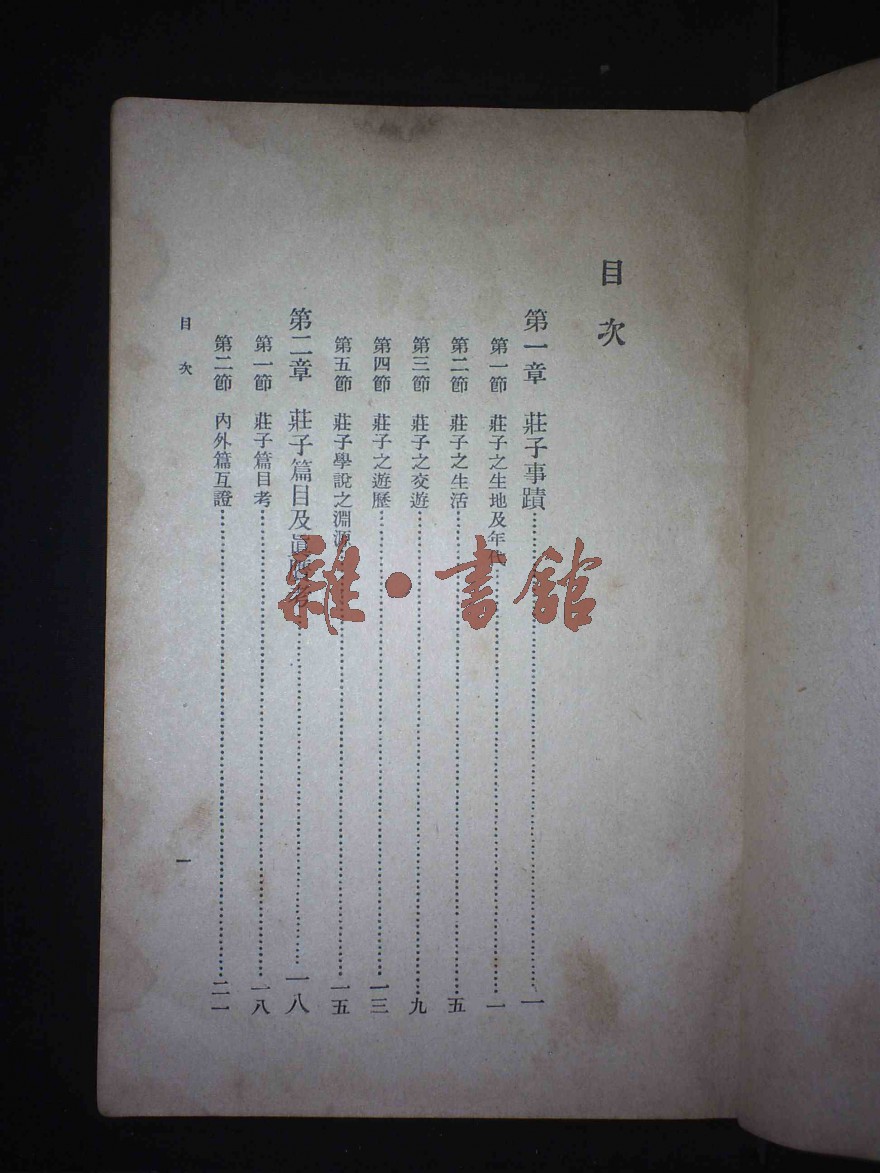 目次
第一章 莊子事蹟……一
第一節 莊子之生地及年代……一
第二節 莊子之生活……五
第三節 莊子之交遊……九
第四節 莊子之遊歷……一三
第五節 莊子學說之淵源……一五
第二章 莊子篇目及眞僞考……一八
第一節 莊子篇目考……一八
第二節 內外篇互證……二一
目次
一
雜·書館